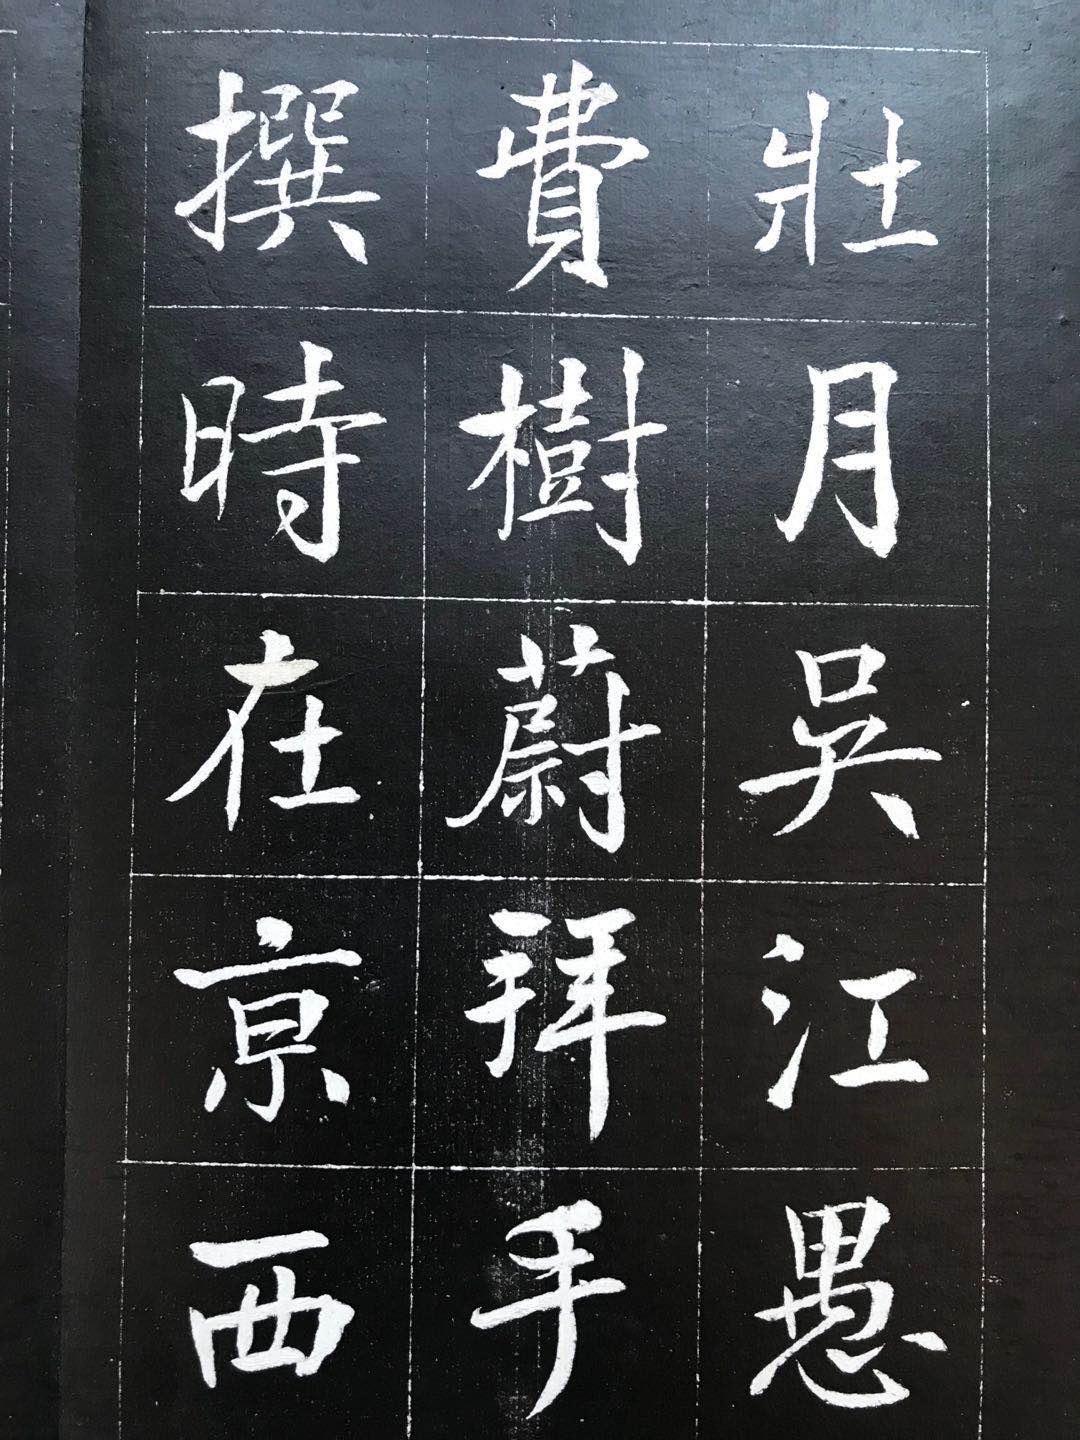 壯月吳江愚
費樹蔚拜手
撰時在京西